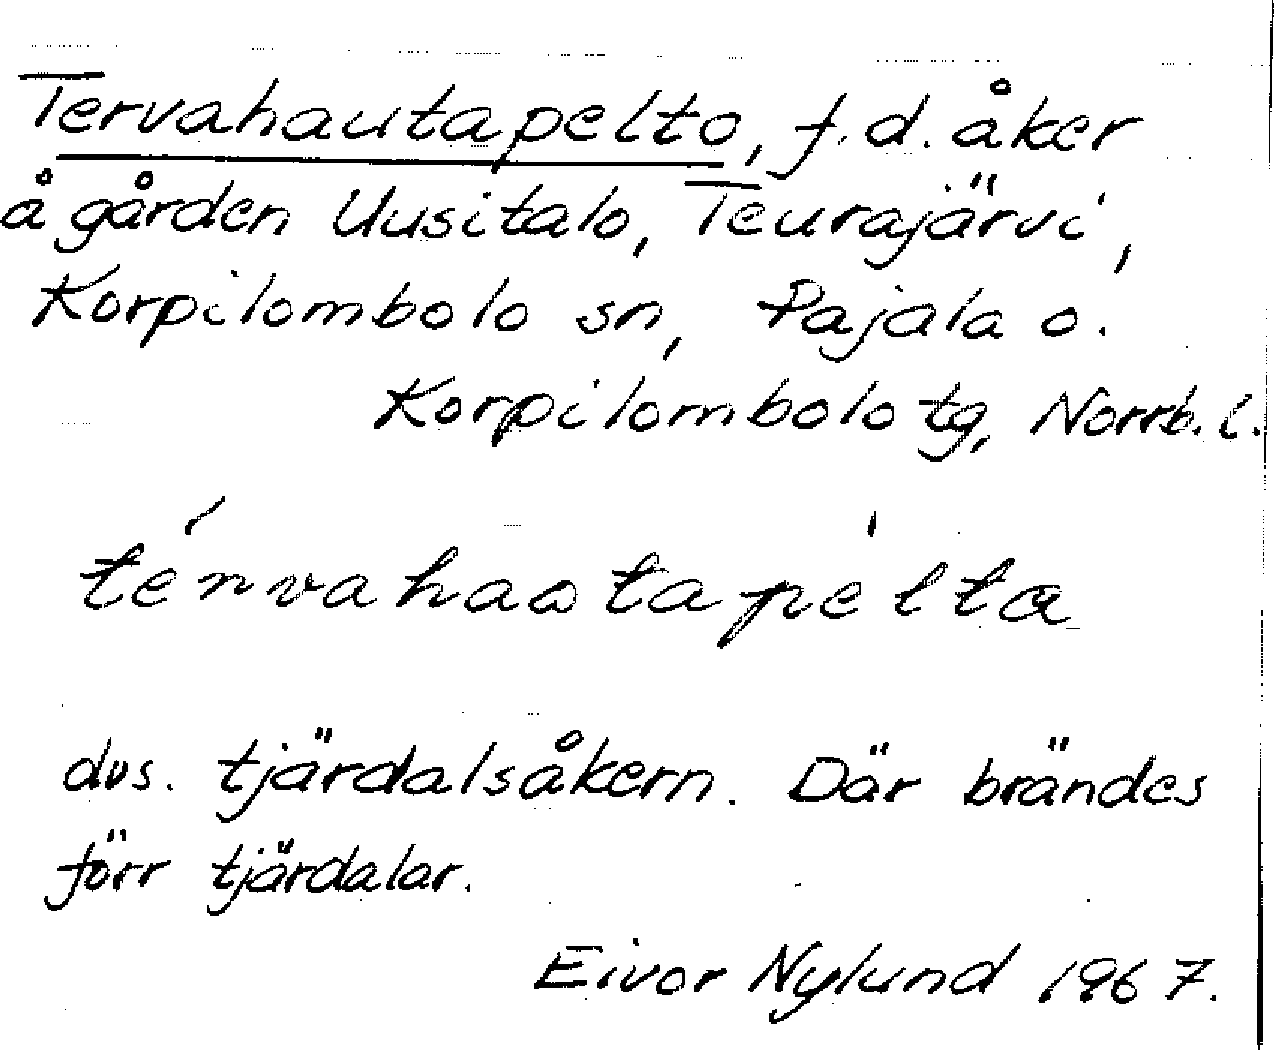 Tervahautapelto, f.d. åker
å gården Uusitalo, Teurajärvi,
Korpilombolo sn, Pajala o.
Korpilombolo tg, Norrb. l.
térvahaωtapèlta
dvs. tjärdalsåkern. Där brändes
förr tjärdalar.
Eivor Nylund 1967.